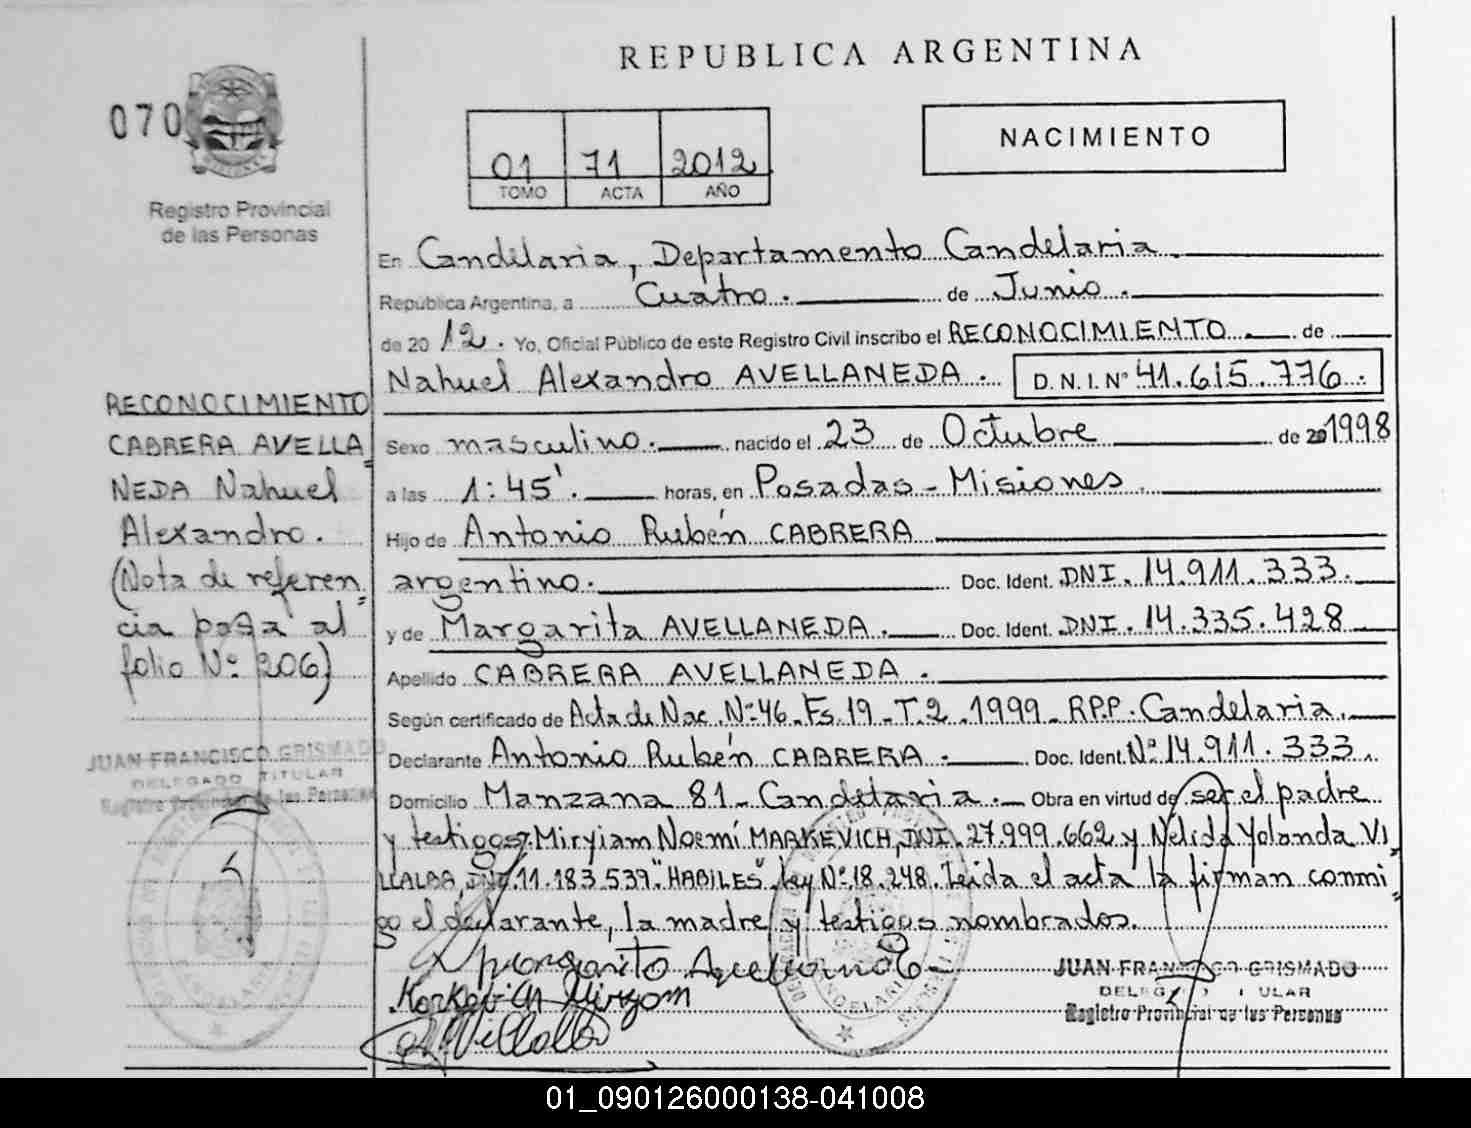 REPUBLICA ARGENTINA
070
Registro Provincial
de las Personas
01 71 2012
TOMO ACTA AÑO
NACIMIENTO
En Candelaria, Departamento Candelaria.
República Argentina, a Cuatro. de Junio.
de 2012. Yo, Oficial Público de este Registro Civil inscribo el RECONOCIMIENTO. de
Nahuel Alexandro AVELLANEDA. D.N.I. Nº 41.615.776.
Sexo masculino. nacido el 23 de Octubre de 1998
a las 1:45'. horas, en Posadas - Misiones.
Hijo de Antonio Rubén CABRERA
argentino. Doc. Ident. DNI. 14.911.333.
y de Margarita AVELLANEDA. Doc. Ident. DNI. 14.335.428
Apellido CABRERA AVELLANEDA.
Según certificado de Acta de Nac. Nº 46 - Fs. 19 - T. 2. 1999 - RPP. Candelaria.
Declarante Antonio Rubén CABRERA. Doc. Ident. Nº 14.911.333.
Domicilio Manzana 81 - Candelaria. Obra en virtud de ser el padre
y testigos: Miryiam Noemí MARKEVICH, DNI. 27.999.662 y Nélida Yolanda VI
LLALBA, DNI. 11.183.539. "HABILES" Ley Nº 18.248. Leida el acta la firman conmi
go el declarante, la madre y testigos nombrados.
RECONOCIMIENTO
CABRERA AVELLA
NEDA Nahuel
Alexandro.
(Nota de referen
cia pasa al
folio Nº 206)
JUAN FRANCISCO GRISMADO
DELEGADO TITULAR
Registro Provincial de las Personas
JUAN FRANCISCO GRISMADO
DELEGADO TITULAR
Registro Provincial de las Personas
01_090126000138-041008